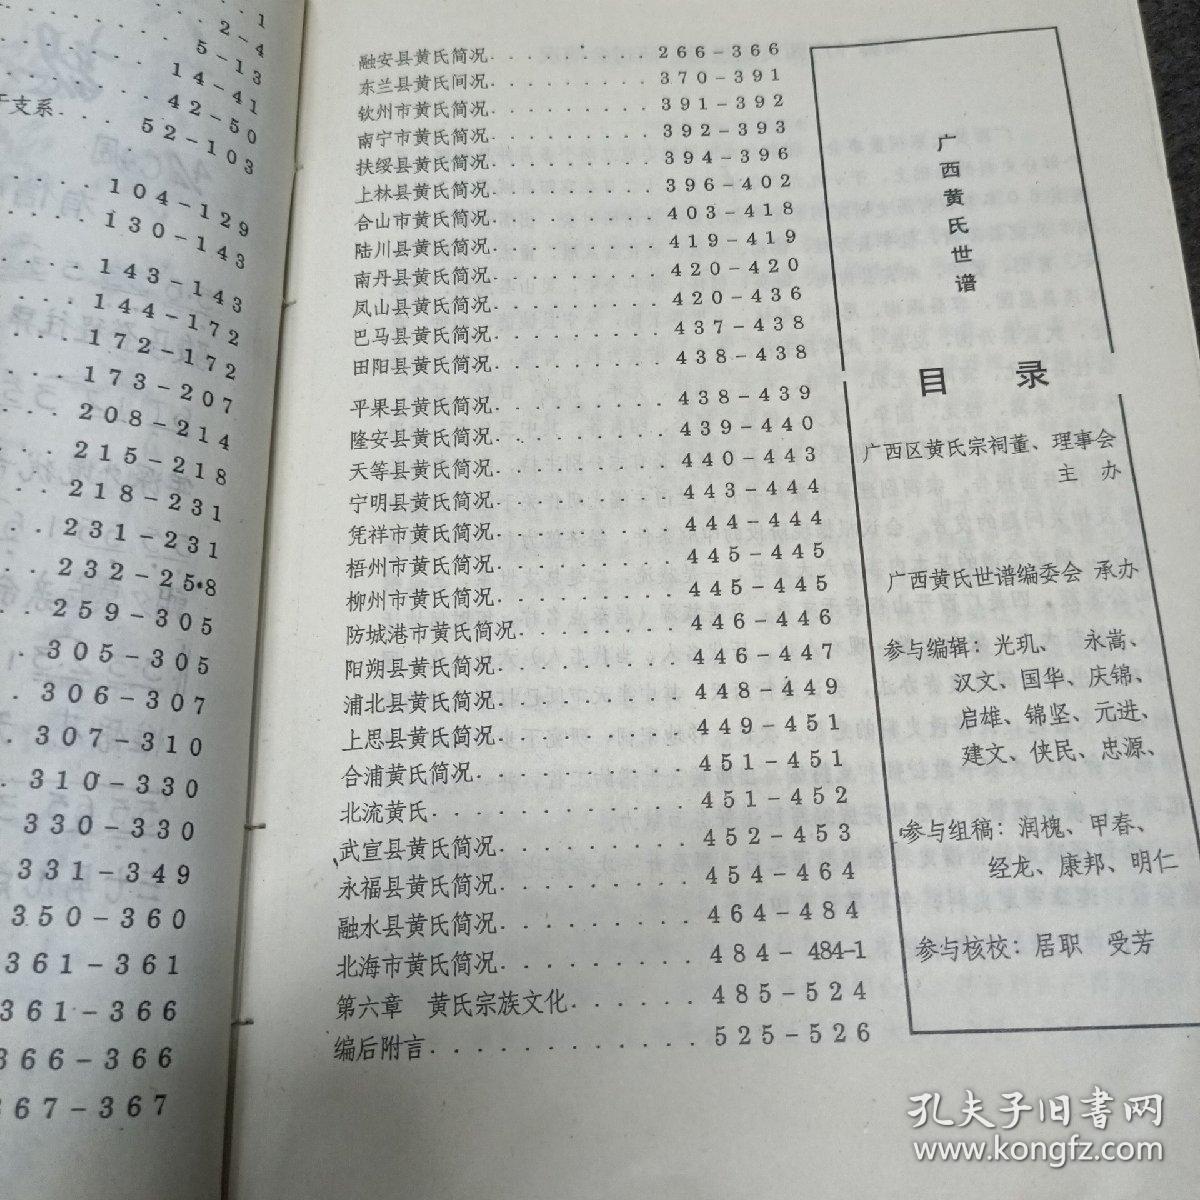 1
2-4
5-13
14-41
42-50
于支系... 52-103
104-129
130-143
143-143
144-172
172-172
173-207
208-214
215-218
218-231
231-231
232-25·8
259-305
305-305
306-307
307-310
310-330
330-330
331-349
350-360
361-361
361-366
366-366
367-367
融安县黄氏简况.........266-366
东兰县黄氏间况.........370-391
钦州市黄氏简况.........391-392
南宁市黄氏简况.........392-393
扶绥县黄氏简况.........394-396
上林县黄氏简况.........396-402
合山市黄氏简况.........403-418
陆川县黄氏简况.........419-419
南丹县黄氏简况.........420-420
凤山县黄氏简况.........420-436
巴马县黄氏简况.........437-438
田阳县黄氏简况.........438-438
平果县黄氏简况.........438-439
隆安县黄氏简况.........439-440
天等县黄氏简况.........440-443
宁明县黄氏简况.........443-444
凭祥市黄氏简况.........444-444
梧州市黄氏简况.........445-445
柳州市黄氏简况.........445-445
防城港市黄氏简况........446-446
阳朔县黄氏简况.........446-447
浦北县黄氏简况.........448-449
上思县黄氏简况.........449-451
合浦黄氏简况..........451-451
北流黄氏............451-452
武宣县黄氏简况.........452-453
永福县黄氏简况.........454-464
融水县黄氏简况.........464-484
北海市黄氏简况.........484-484-1
第六章 黄氏宗族文化......485-524
编后附言............525-526
广西黄氏世谱
目 录
广西区黄氏宗祠董、理事会
主 办
广西黄氏世谱编委会 承办
参与编辑：光玑、 永嵩、
汉文、国华、庆锦、
启雄、锦坚、元进、
建文、侠民、忠源、
参与组稿：润槐、甲春、
经龙、康邦、明仁
参与核校：居职 受芳
孔夫子旧书网
www.kongfz.com